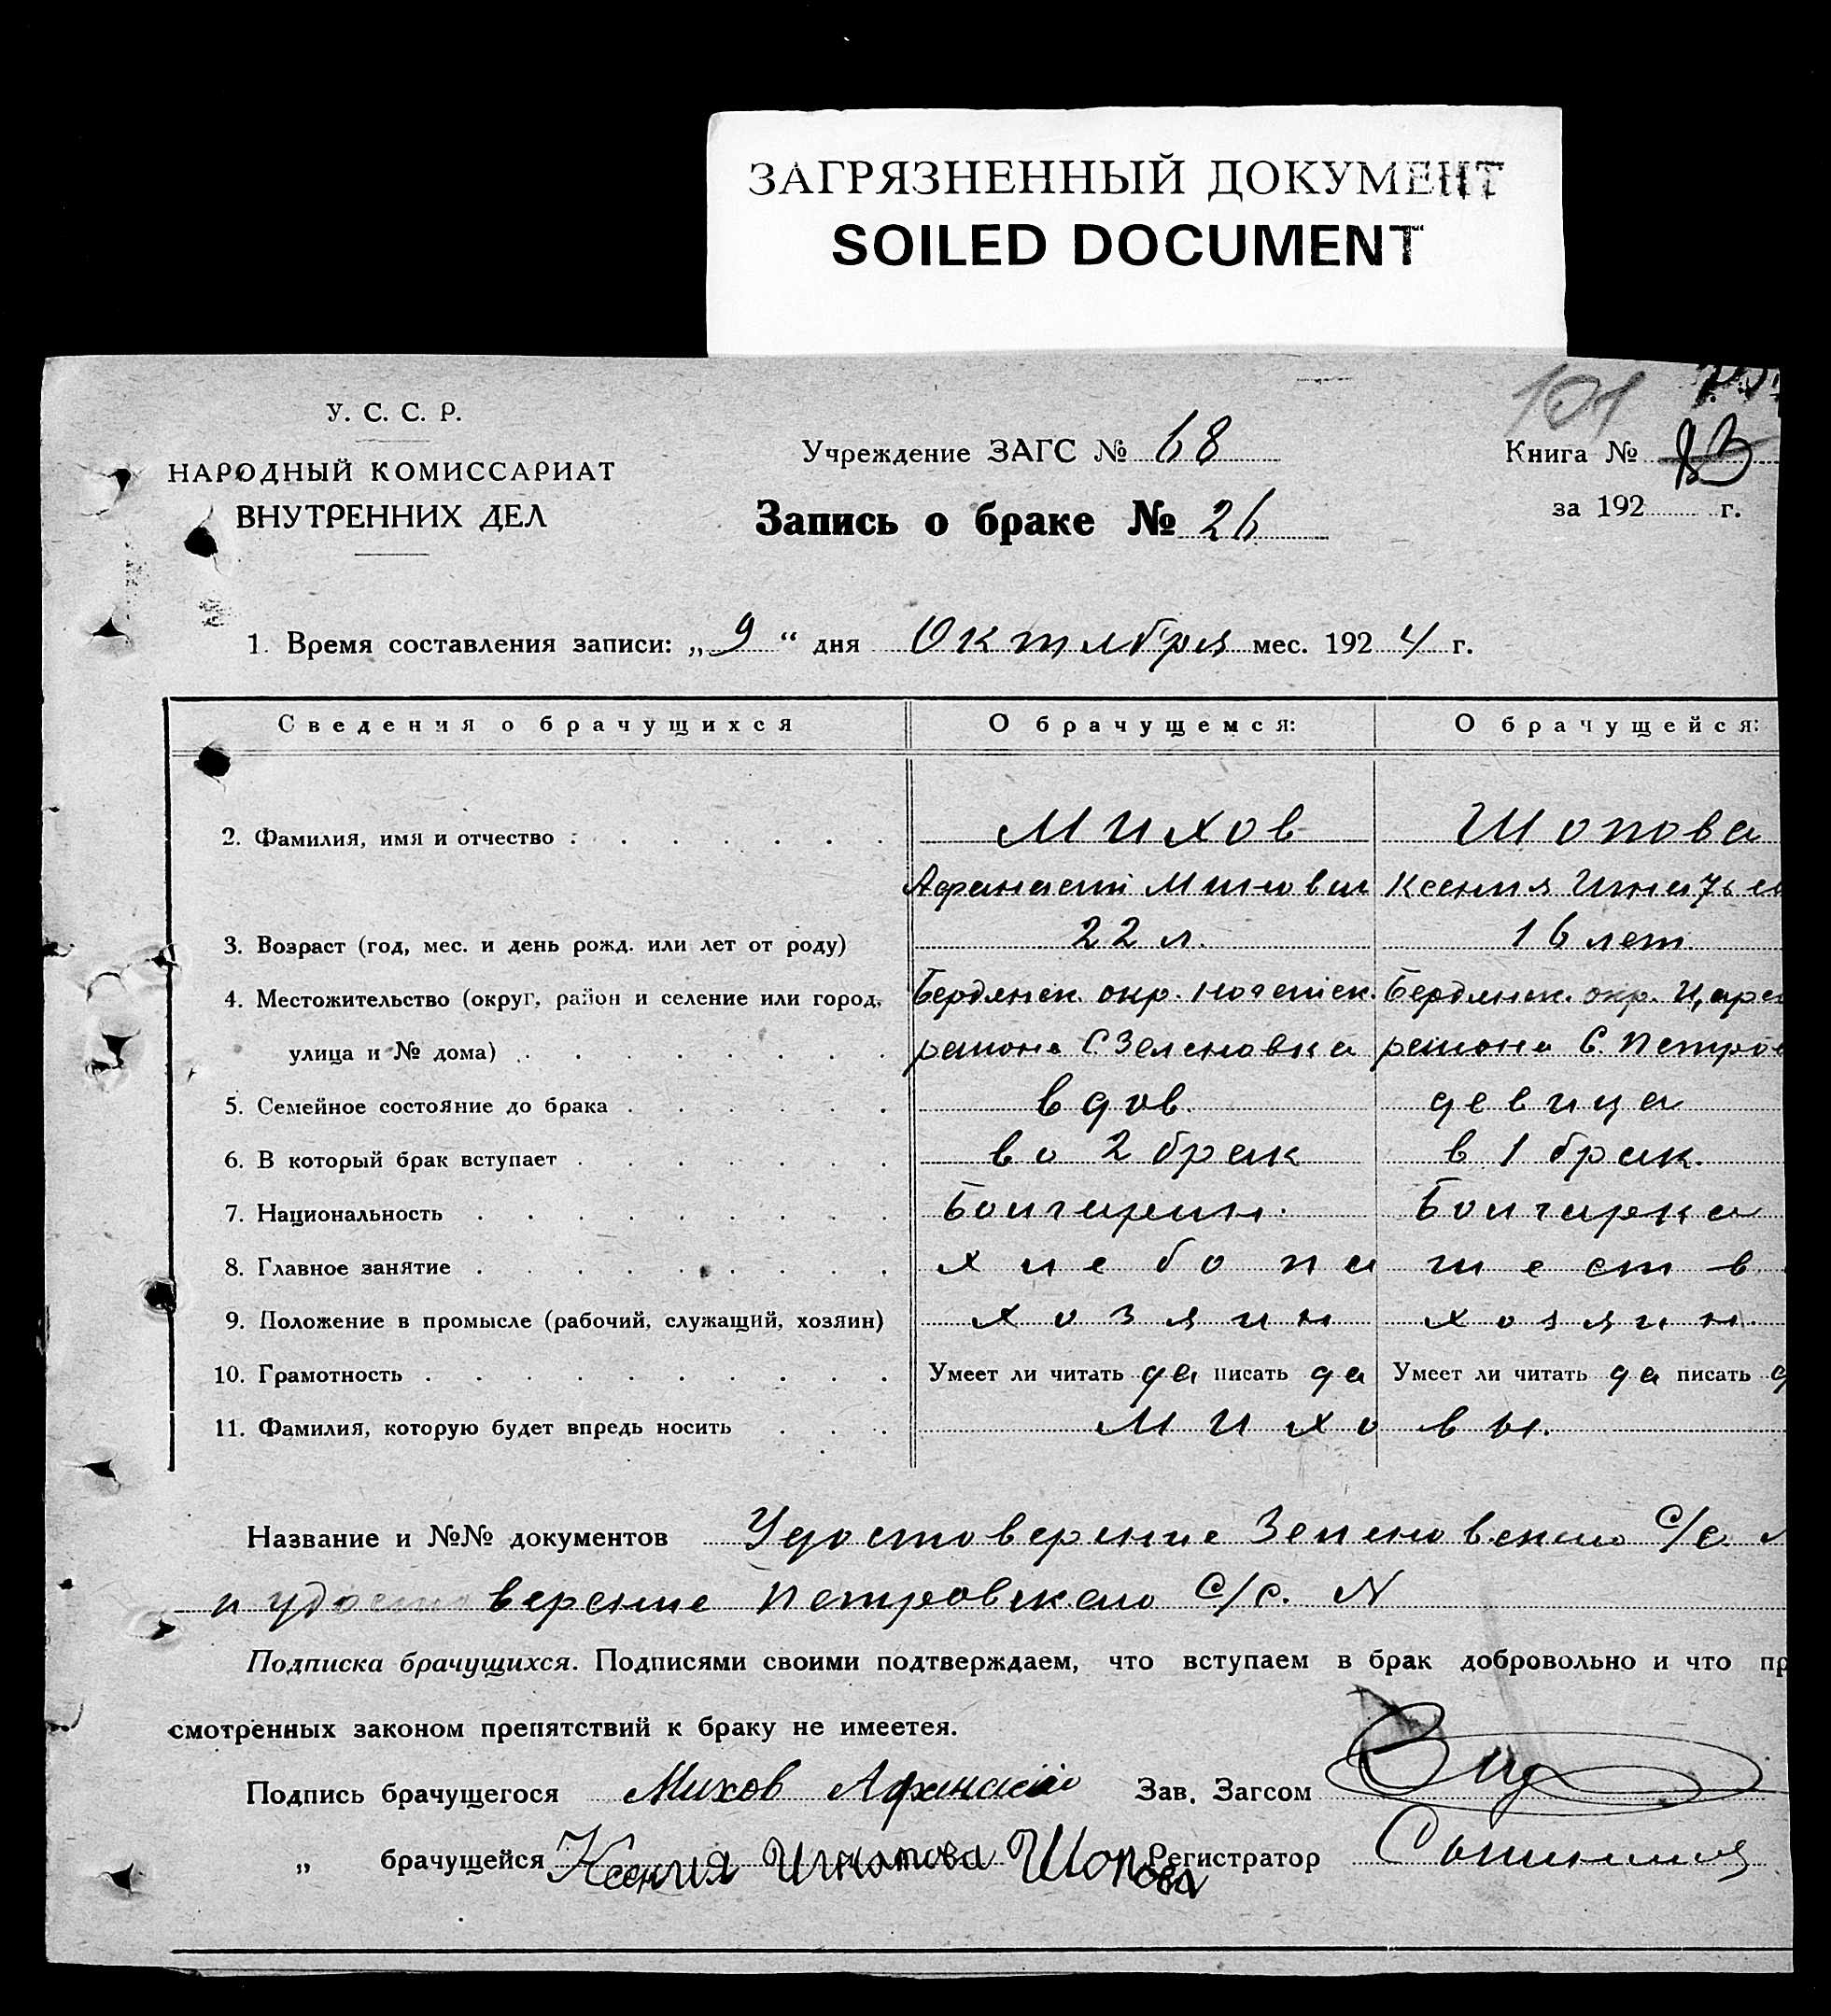 ЗАГРЯЗНЕННЫЙ ДОКУМЕНТ
SOILED DOCUMENT
101
У. С. С. Р.
НАРОДНЫЙ КОМИССАРИАТ
ВНУТРЕННИХ ДЕЛ
Учреждение ЗАГС № 68
Книга № 83
за 192 г.
Запись о браке № 26
1. Время составления записи: „ 9 “ дня Октября мес. 192 4 г.
Сведения о брачущихся О брачущемся: О брачущейся:
2. Фамилия, имя и отчество Михов Шопова
Афанасий Ксения
3. Возраст (год, мес. и день рожд. или лет от роду) 22 л. 16 лет
4. Местожительство (округ, район и селение или город, Бердянск. окр. Бердянск. окр. Царе
улица и № дома) района С. Зеленовка района С. Петров
5. Семейное состояние до брака вдов. девица
6. В который брак вступает во 2 брак в 1 брак.
7. Национальность Болгарин. Болгарка
8. Главное занятие хлебопашеств
9. Положение в промысле (рабочий, служащий, хозяин) хозяин хозяин.
10. Грамотность Умеет ли читать да писать да Умеет ли читать да писать д
11. Фамилия, которую будет впредь носить Миховы.
Название и №№ документов Удостоверение Зеленовского С/С.
и удостоверение Петровского С/С. N
Подписка брачущихся. Подписями своими подтверждаем, что вступаем в брак добровольно и что пр
смотренных законом препятствий к браку не имеетея.
Подпись брачущегося Михов Афанасий Зав. Загсом
„ брачущейся Ксения Игнатова Шопова Регистратор